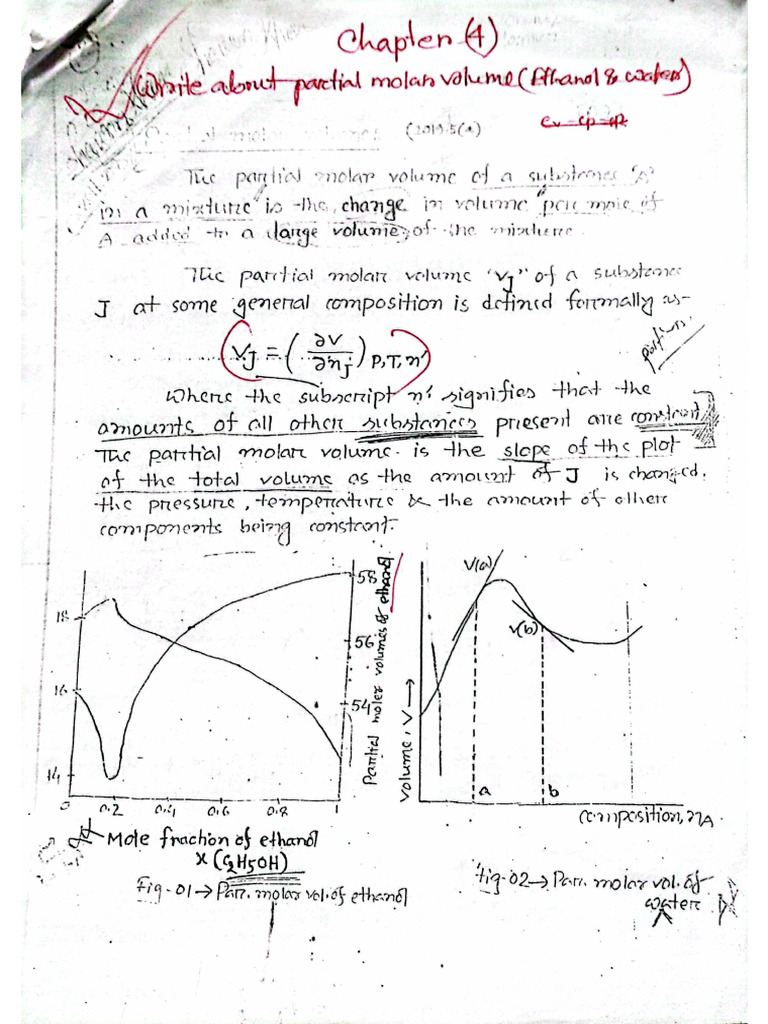 Chapter (4)
Write about partial molar volume (Ethanol & water)
(2019.5(a)
The partial molar volume of a substance 'A'
in a mixture" is the change in volume "per mole of
A added to a large volume, of the mixture.
The partial molar volume "VJ" of a substance
J at some general composition is defined formally as-
VJ = (∂V/∂nJ) P,T,n'
Where the subscript n' signifies that the
amounts of all other substances present are constant
The partial molar volume. is the slope of the plot
of the total volume as the amount of J is changed,
the pressure, temperature & the amount of other
components being constant.
18
16
14
0 0.2 0.4 0.6 0.8 1
58
56
54
Partial molar volumes of ethanol
Mole fraction of ethanol
x (C2H5OH)
Fig-01→ Par. molar vol. of ethanol
V(a)
V(b)
Volume, V →
a b
Composition, nA
Fig-02→ Par. molar vol. of
water